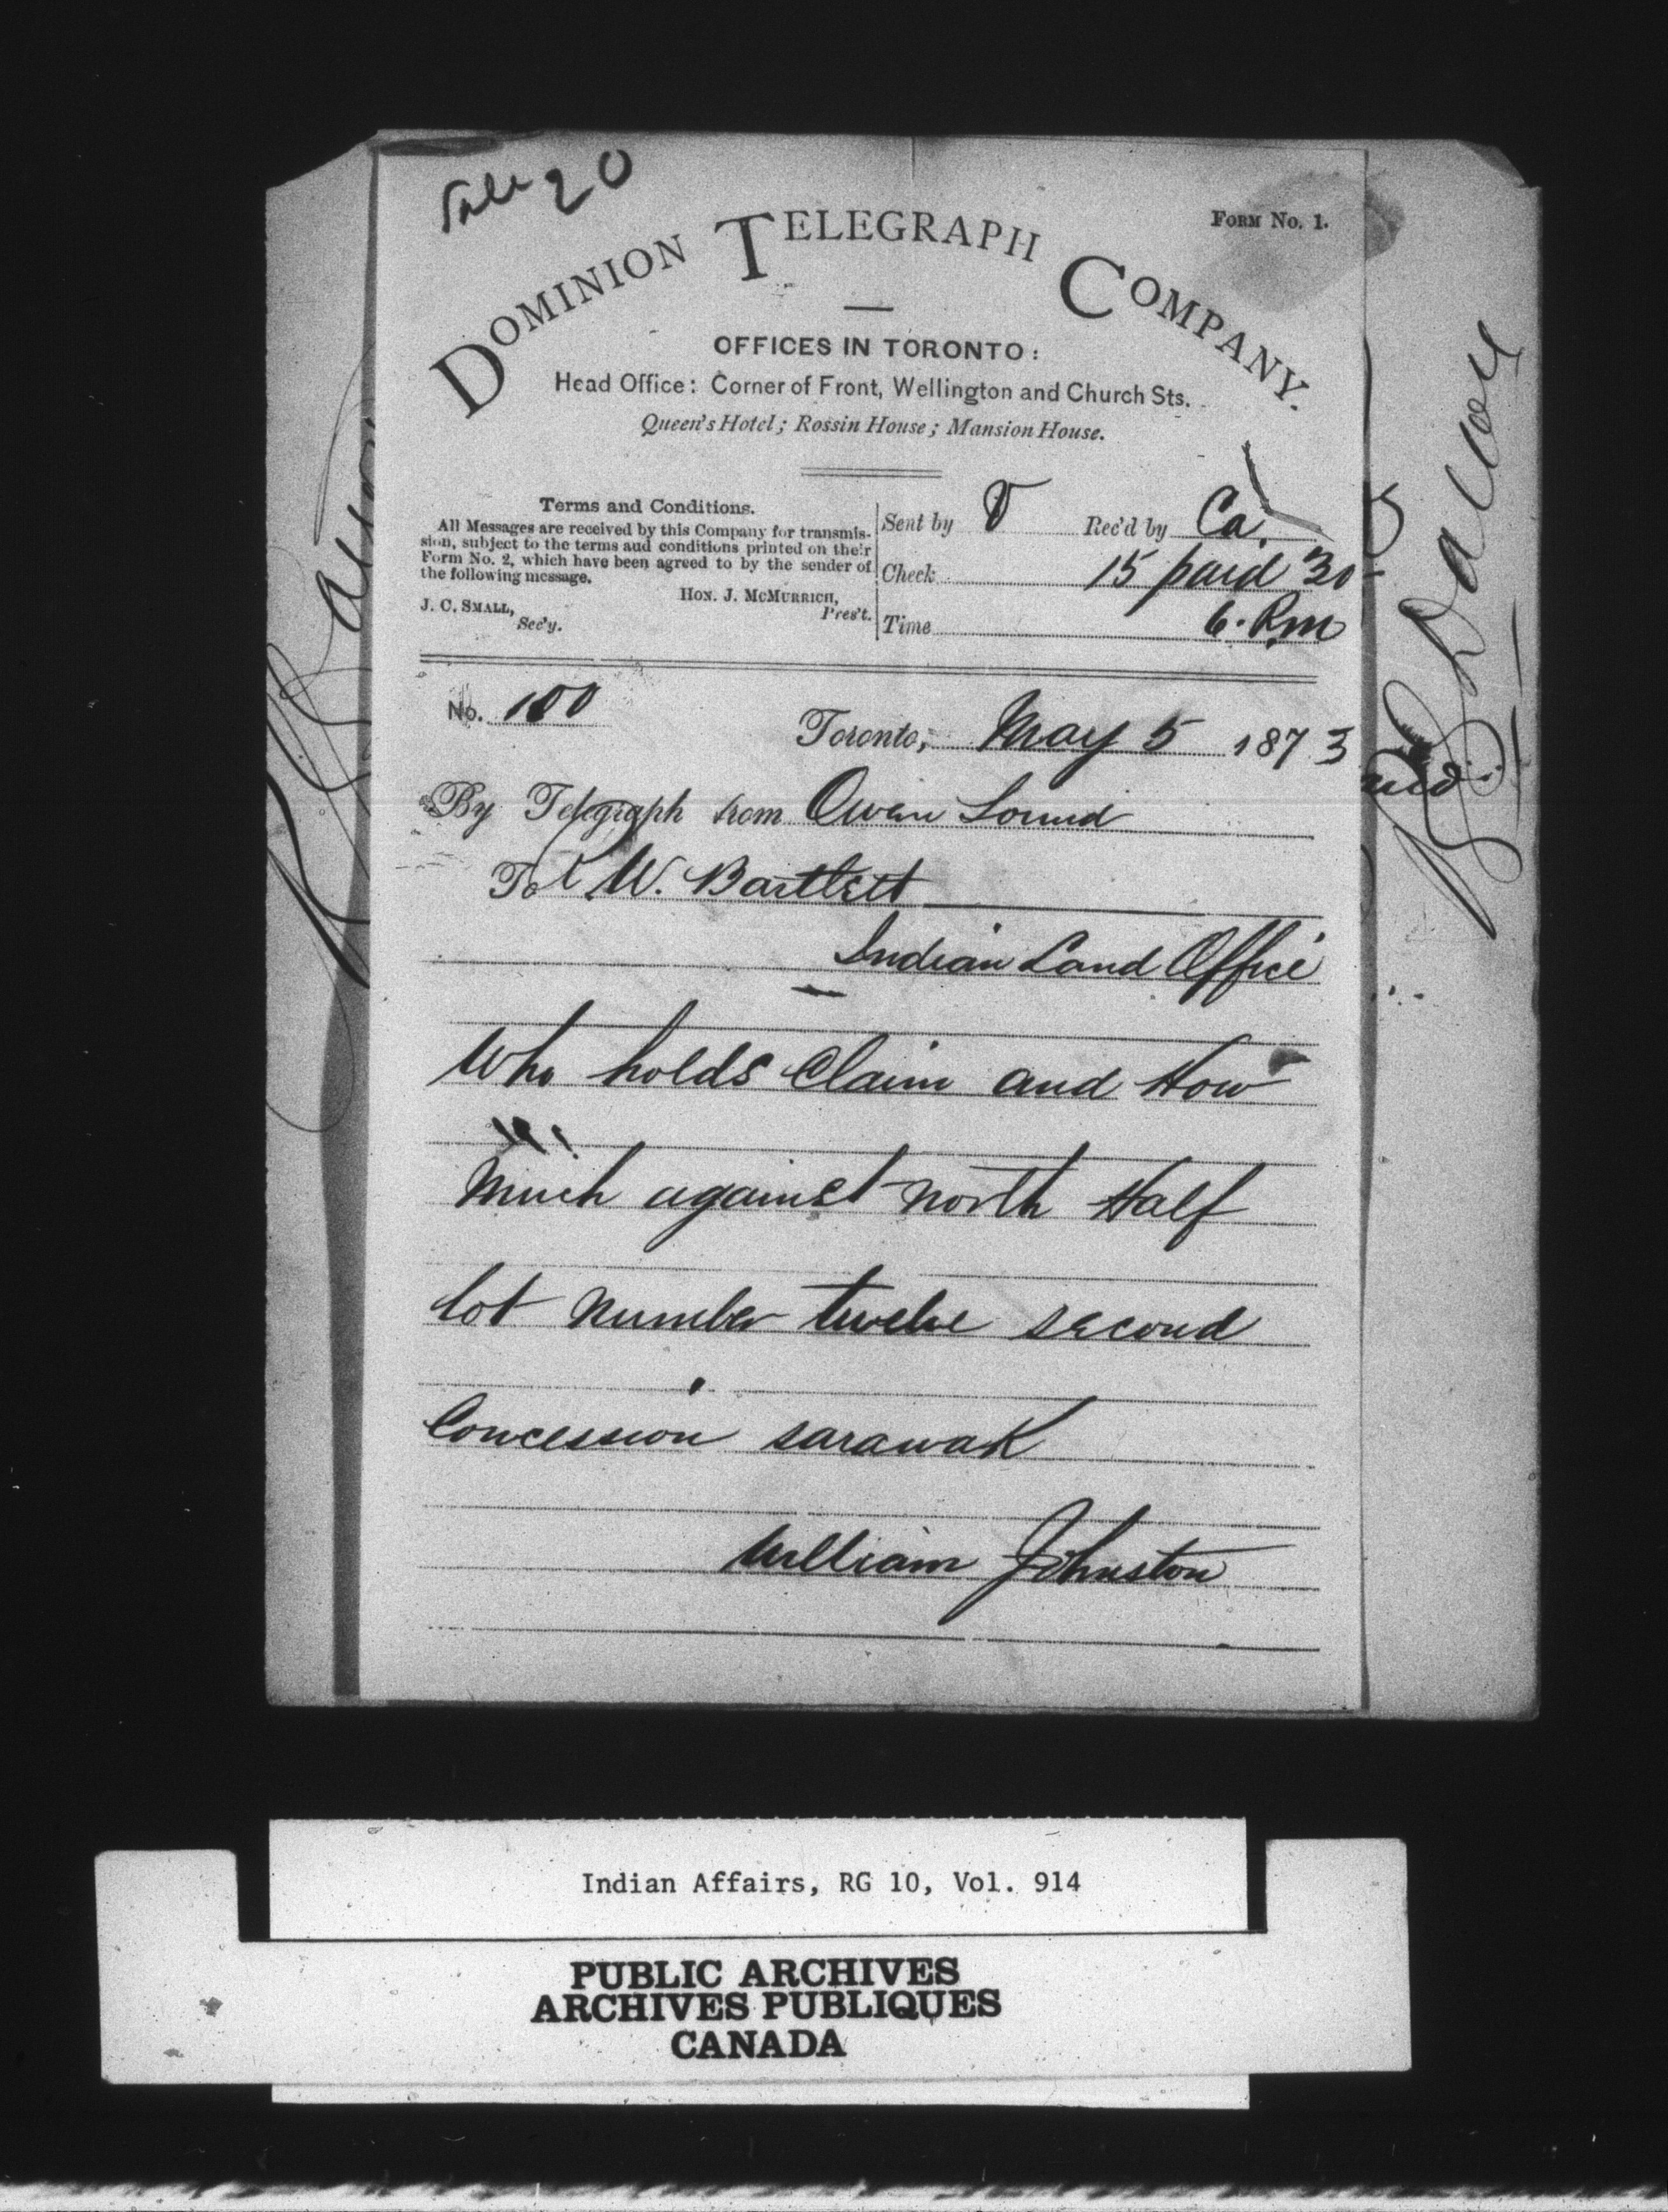 Sale 20
FORM No. 1.
DOMINION TELEGRAPH COMPANY.
OFFICES IN TORONTO:
Head Office: Corner of Front, Wellington and Church Sts.
Queen's Hotel; Rossin House; Mansion House.
Terms and Conditions.
All Messages are received by this Company for transmis-
sion, subject to the terms and conditions printed on their
Form No. 2, which have been agreed to by the sender of
the following message.
HON. J. MCMURRICH,
Pres't.
J. C. SMALL,
Sec'y.
Sent by V Rec'd by Ca.
Check 15 paid 30
Time 6. Pm
No. 100
Toronto, May 5 1873
By Telegraph from Owen Sound
To W. Bartlett
Indian Land Office
Who holds Claim and How
Much against north Half
lot number twelve second
Concession sarawak
William Johnston
Indian Affairs, RG 10, Vol. 914
PUBLIC ARCHIVES
ARCHIVES PUBLIQUES
CANADA